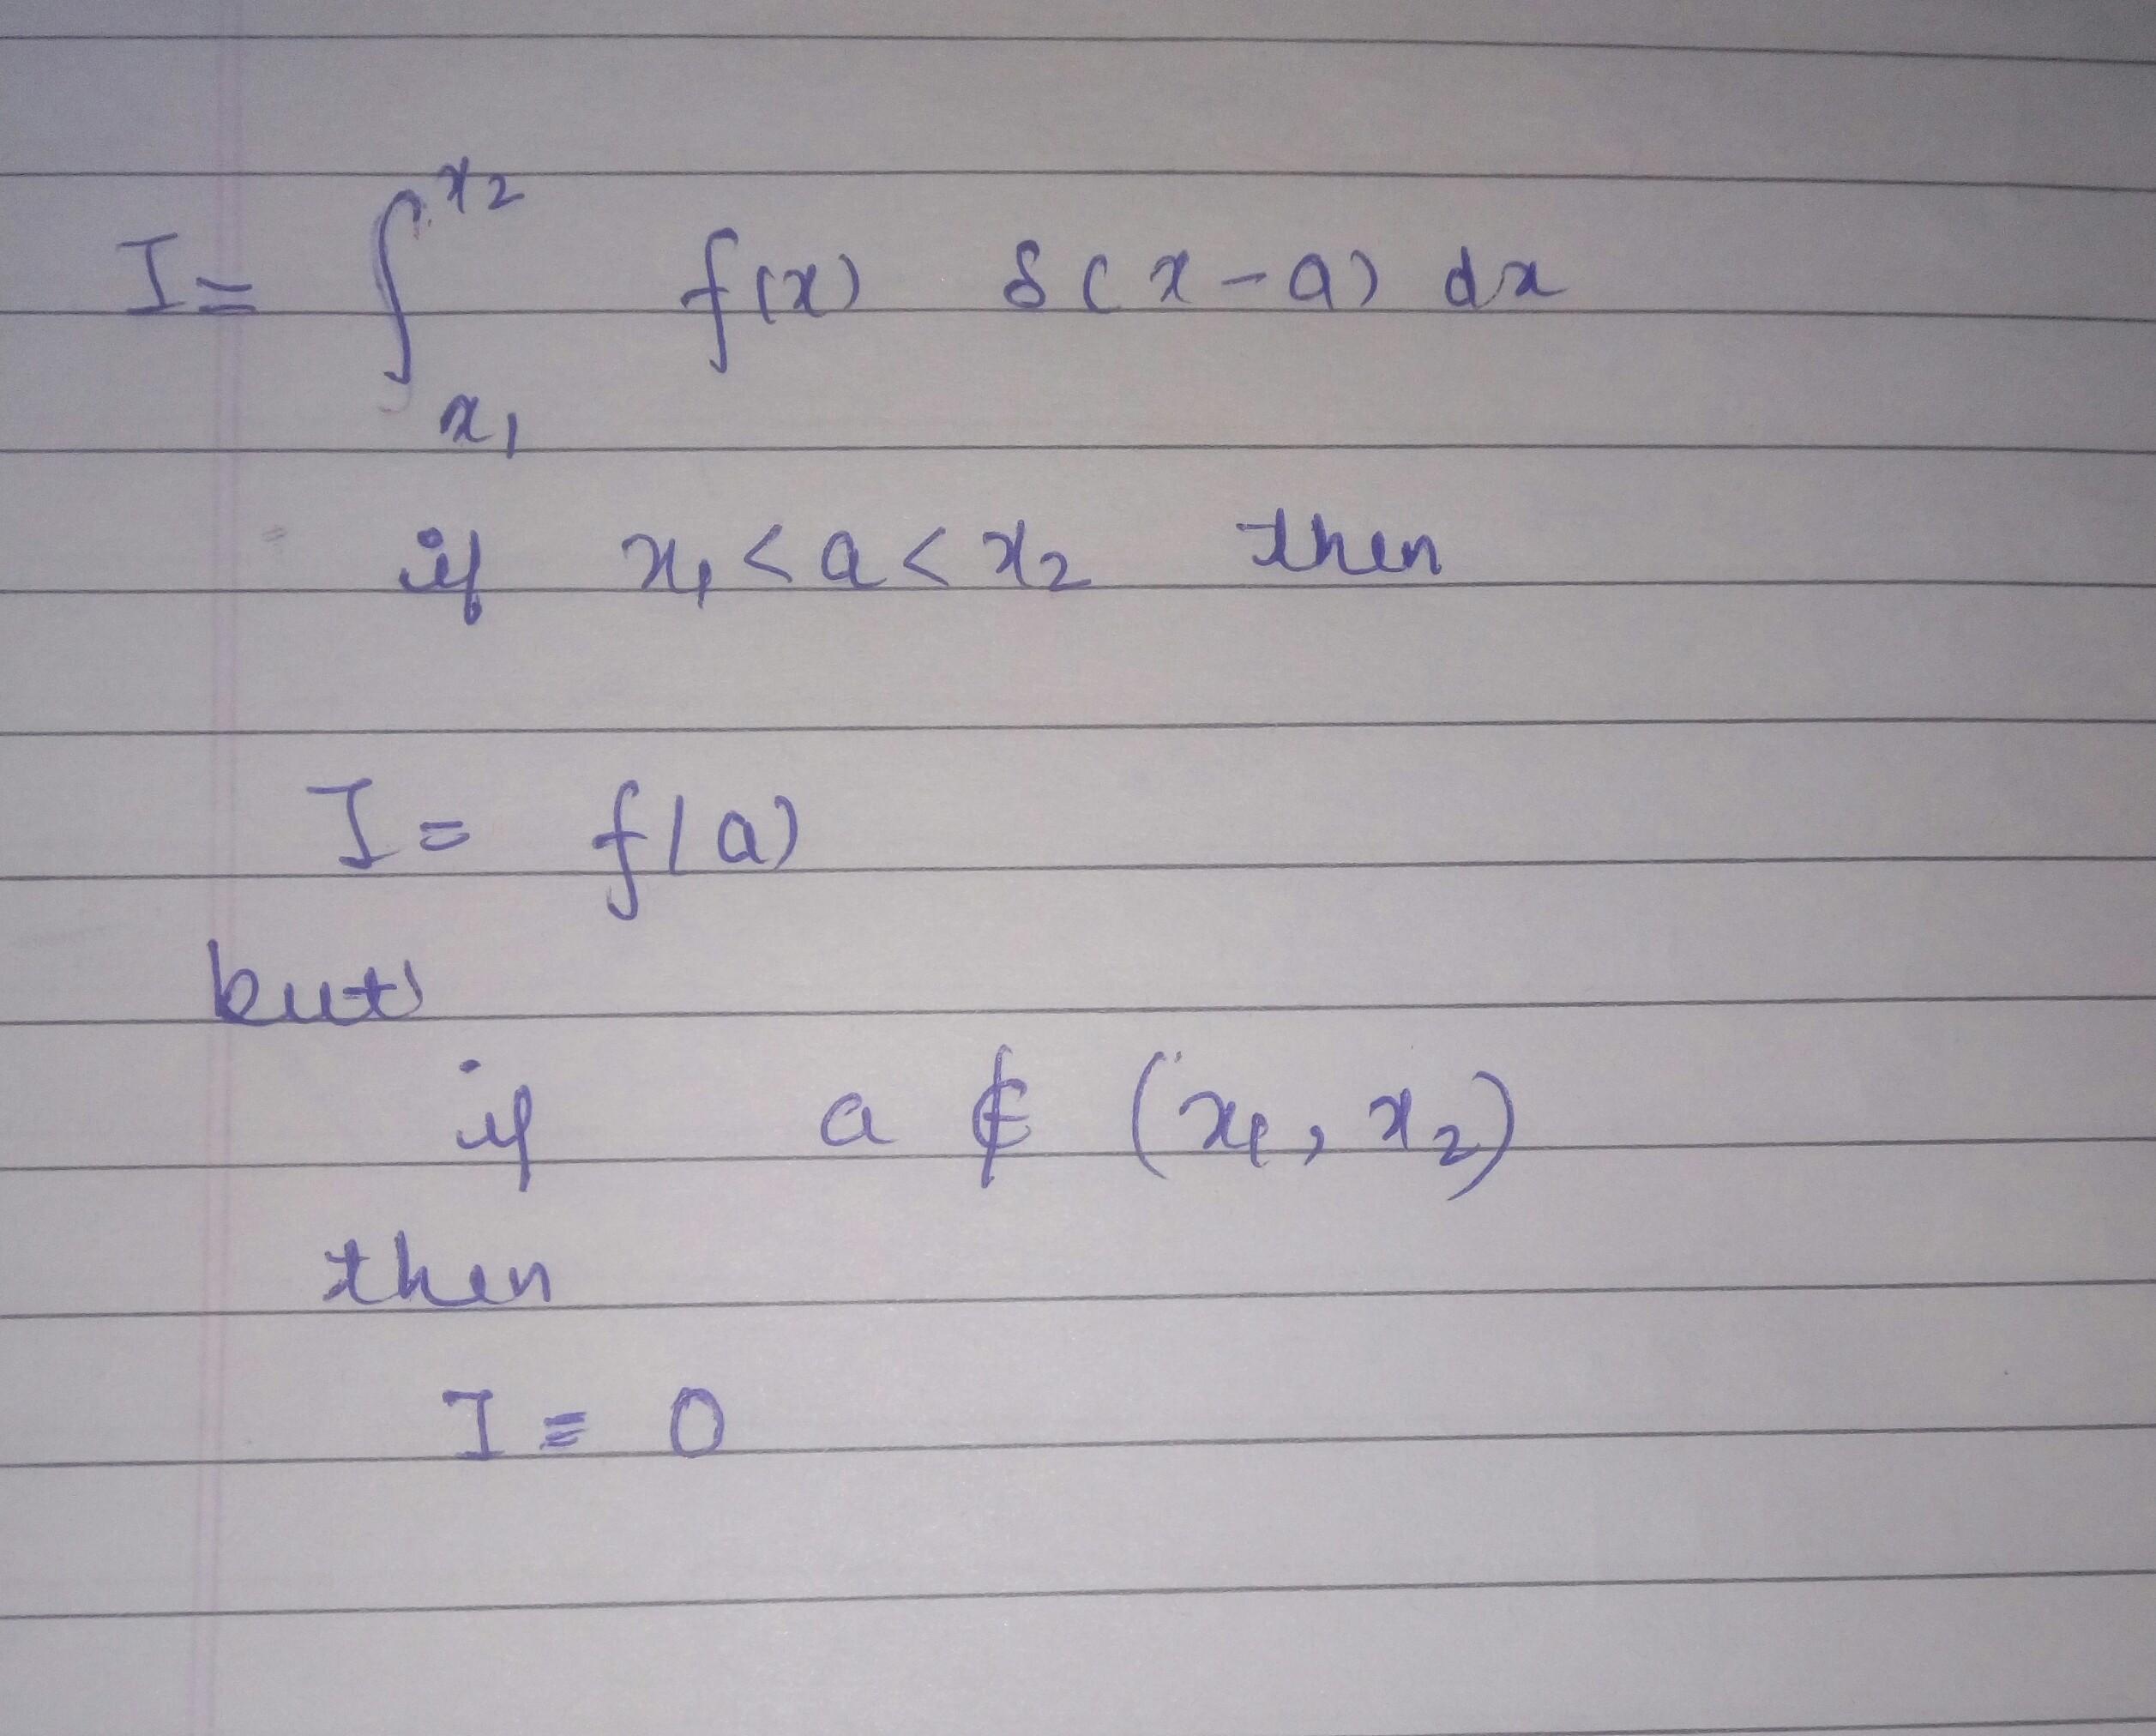 I = ∫_{x₁}^{x₂} f(x) δ(x-a) dx
if x₁ < a < x₂ then
I = f(a)
but
if a ∉ (x₁, x₂)
then
I = 0